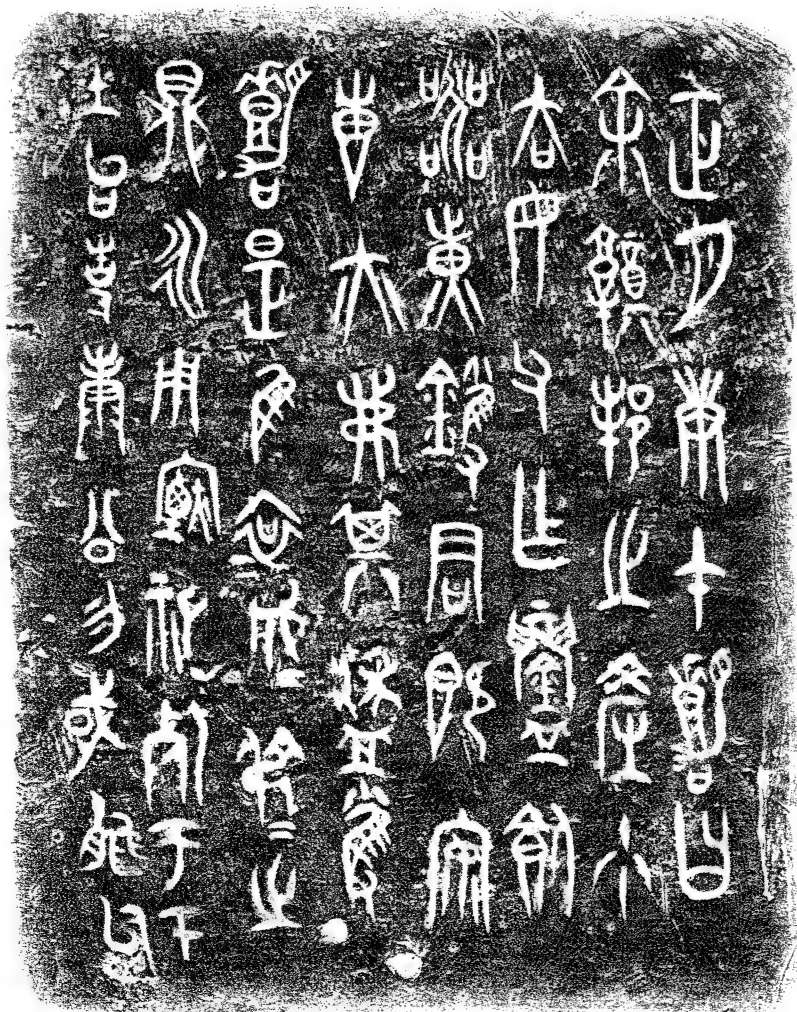 正月庚午嘉曰
余鄭邦之產少
去母父乍鑄飤
器黃鑊君既安
叀亦弗其盠蒦
嘉是隹哀成叔之
鼎永用禋祀死于下
土台事康公勿或能怠